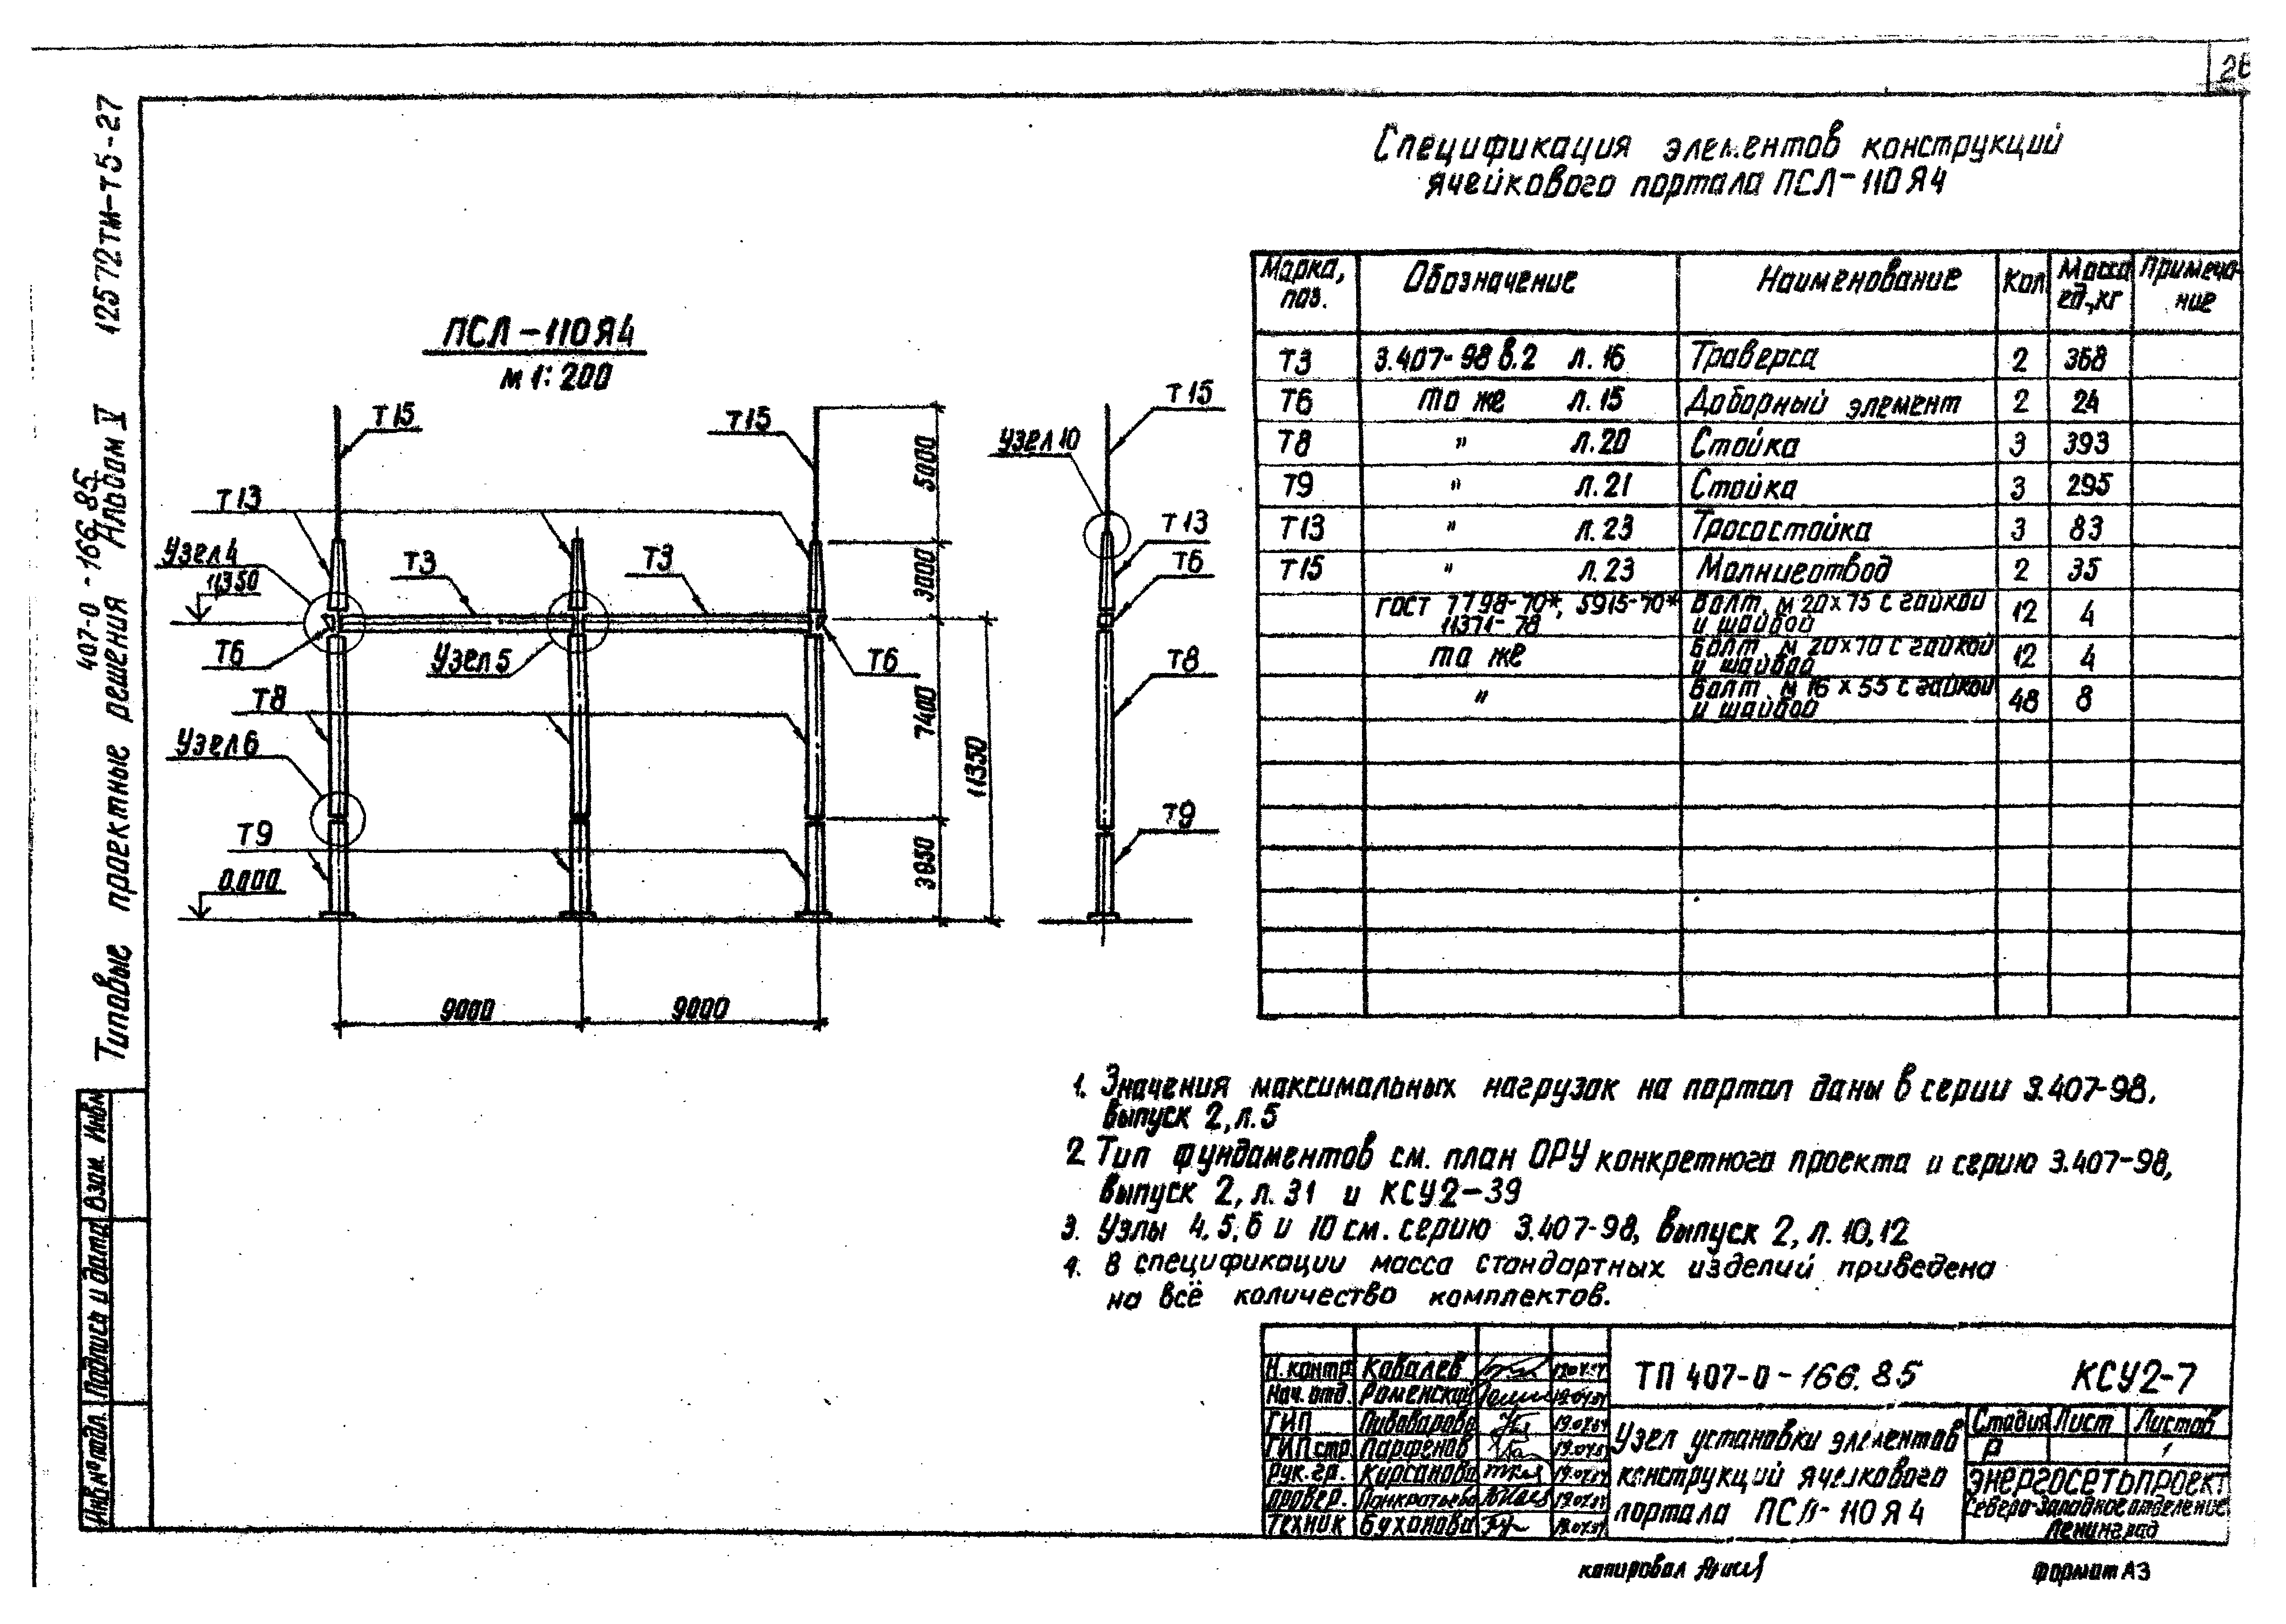 Спецификация элементов конструкций
ячейкового портала ПСЛ-110Я4
12572тм-т5-27
407-0-166.85
Типовые проектные решения Альбом V
ПСЛ-110Я4
м 1:200
Т15
Т15
Т13
Узел 4
11.350
Т3
Т3
Т6
Узел 5
Т6
Т8
Узел 6
Т9
0.000
5000
3000
7400
3950
11350
9000
9000
Т15
Узел 10
Т13
Т6
Т8
Т9
Марка, поз. Обозначение Наименование Кол Масса ед.,кг Примеча-ние
Т3 3.407-98 в.2 л.16 Траверса 2 368
Т6 то же л.15 Доборный элемент 2 24
Т8 " л.20 Стойка 3 393
Т9 " л.21 Стойка 3 295
Т13 " л.23 Тросостойка 3 83
Т15 " л.23 Молниеотвод 2 35
ГОСТ 7798-70*, 5915-70* 11371-78 Болт м 20х75 с гайкой и шайбой 12 4
то же Болт м 20х70 с гайкой и шайбой 12 4
" Болт м 16х55 с гайкой и шайбой 48 8
1. Значения максимальных нагрузок на портал даны в серии 3.407-98,
выпуск 2, л.5
2 Тип фундаментов см. план ОРУ конкретного проекта и серию 3.407-98,
выпуск 2, л.31 и КСУ2-39
3. Узлы 4,5,6 и 10 см. серию 3.407-98, выпуск 2, л.10,12
4. В спецификации масса стандартных изделий приведена
на всё количество комплектов.
Н.контр Ковалев
Нач.отд. Роменский
ГИП Пивоварова
ГИП стр Парфенов
Рук.гр. Кирсанова
Провер. Панкратьева
Техник Буханова
ТП 407-0-166.85 КСУ2-7
Узел установки элементов
конструкций ячейкового
портала ПСЛ-110Я4
Стадия Лист Листов
Р 1
ЭНЕРГОСЕТЬПРОЕКТ
Северо-Западное отделение
Ленинград
Инв№подл. Подпись и дата Взам. Инв№
копировал
формат А3